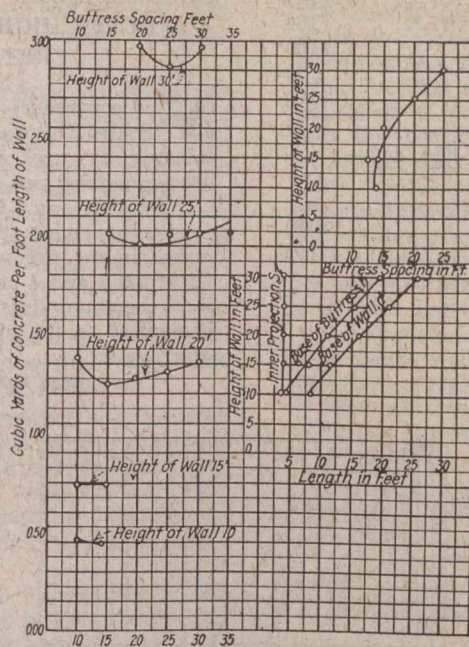 Buttress Spacing Feet
10 15 20 25 30 35
Cubic Yards of Concrete Per Foot Length of Wall
3.00
2.50
2.00
1.50
1.00
0.50
0.00
Height of Wall 30'
Height of Wall 25'
Height of Wall 20'
Height of Wall 15'
Height of Wall 10
10 15 20 25 30 35
Height of Wall in Feet
30
25
20
15
10
5
0
10 15 20 25
Buttress Spacing in Ft.
Height of Wall in Feet
30
25
20
15
10
0
Inner Projection
Base of Buttress
Base of Wall
5 10 15 20 25 30
Length in Feet